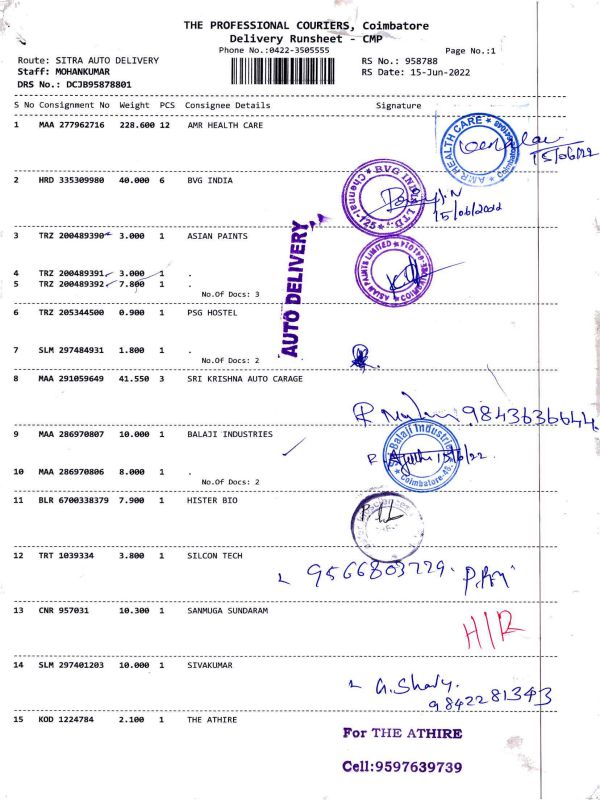 THE PROFESSIONAL COURIERS, Coimbatore
Delivery Runsheet - CMP
Phone No.:0422-3505555
Page No.:1
Route: SITRA AUTO DELIVERY
RS No.: 958788
Staff: MOHANKUMAR
RS Date: 15-Jun-2022
DRS No.: DCJB95878801
S No Consignment No Weight PCS Consignee Details Signature
1 MAA 277962716 228.600 12 AMR HEALTH CARE
AMR HEALTH CARE
Coimbatore
15/06/22
2 HRD 335309980 40.000 6 BVG INDIA
BVG INDIA LTD.
Chennai-125
15/06/2022
AUTO DELIVERY
3 TRZ 200489390 3.000 1 ASIAN PAINTS
ASIAN PAINTS LIMITED
4 TRZ 200489391 3.000 1 .
5 TRZ 200489392 7.800 1 .
No.Of Docs: 3
6 TRZ 205344500 0.900 1 PSG HOSTEL
7 SLM 297484931 1.800 1 .
No.Of Docs: 2
8 MAA 291059649 41.550 3 SRI KRISHNA AUTO CARAGE
9843636644
9 MAA 286970807 10.000 1 BALAJI INDUSTRIES
Balaji Industries
Coimbatore-45.
15/6/22.
10 MAA 286970806 8.000 1 .
No.Of Docs: 2
11 BLR 6700338379 7.900 1 HISTER BIO
12 TRT 1039334 3.800 1 SILCON TECH
9566803729.
13 CNR 957031 10.300 1 SANMUGA SUNDARAM
H/R
14 SLM 297401203 10.000 1 SIVAKUMAR
9842281343
15 KOD 1224784 2.100 1 THE ATHIRE
For THE ATHIRE
Cell:9597639739